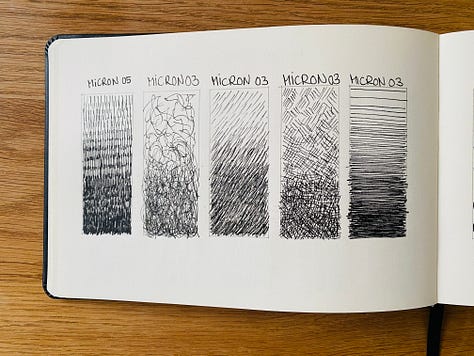 MICRON 05
MICRON 03
MICRON 03
MICRON 03
MICRON 03